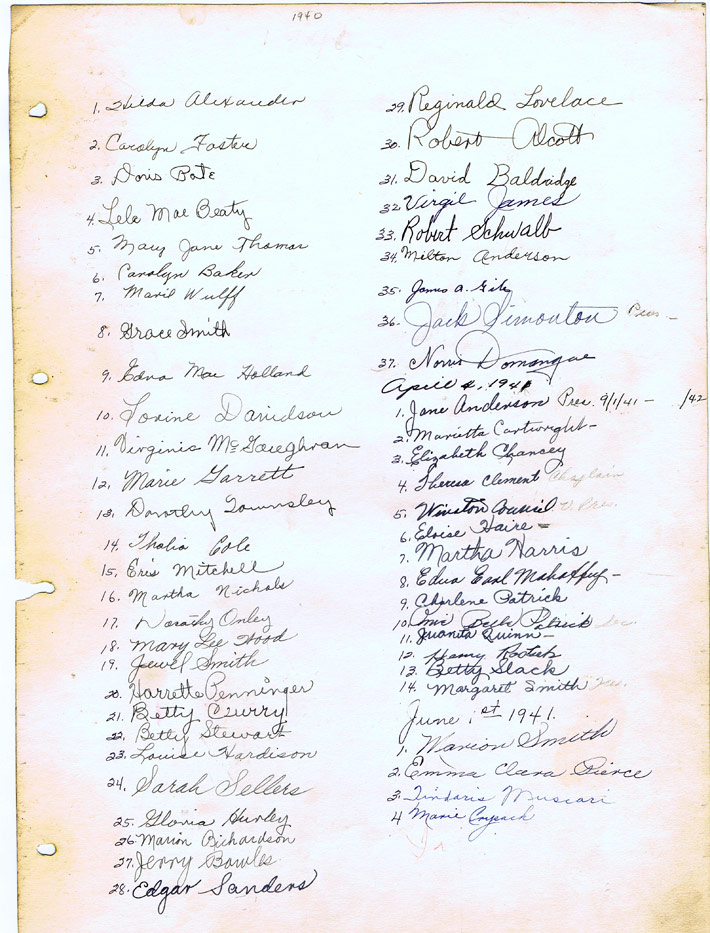 1940
1. Hilda Alexander
2. Carolyn Foster
3. Doris Pate
4. Lela Mae Beaty
5. Mary Jane Thomas
6. Carolyn Baker
7. Marie Wulff
8. Grace Smith
9. Edna Mae Holland
10. Lorine Davidson
11. Virginia McGaughran
12. Marie Garrett
13. Dorothy Townsley
14. Thalia Cole
15. Eris Mitchell
16. Martha Nichols
17. Dorothy Onley
18. Mary Lee Hood
19. Jewel Smith
20. Harrette Penninger
21. Betty Curry
22. Betty Stewart
23. Louise Hardison
24. Sarah Sellers
25. Gloria Hurley
26. Marion Richardson
27. Jerry Bowles
28. Edgar Sanders
29. Reginald Lovelace
30. Robert Alcott
31. David Baldridge
32. Virgil James
33. Robert Schwalb
34. Milton Anderson
35. James A.
36. Jack Simonton Pres -
37. Norris Domangue
April 4, 1941
1. Jane Anderson Pres. 9/1/41 - /42
2. Marietta Cartwright -
3. Elizabeth Chancey
4. Theresa Clement Chaplain
5. Winston Council V. Pres.
6. Eloise Haire -
7. Martha Harris
8. Edna Earl Mahaffey -
9. Charlene Patrick
10. Beth Patrick Sec.
11. Juanita Quinn -
12. Henry
13. Betty Slack
14. Margaret Smith
June 1st 1941.
1. Marion Smith
2. Emma Clara Pierce
3. Tindaris Muscari
4 Marie